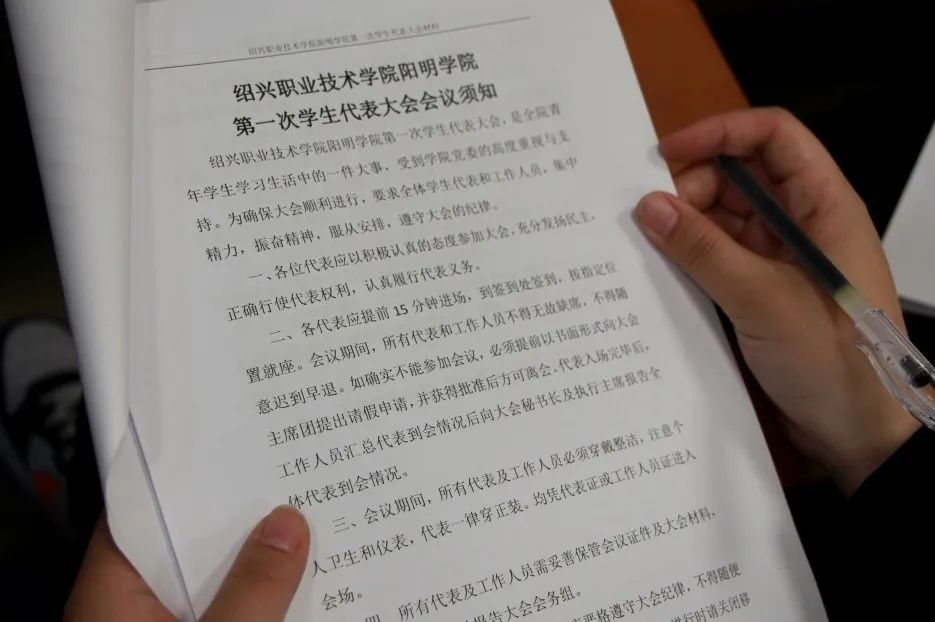 绍兴职业技术学院阳明学院第一次学生代表大会材料
绍兴职业技术学院阳明学院
第一次学生代表大会会议须知
绍兴职业技术学院阳明学院第一次学生代表大会，是全院青
年学生学习生活中的一件大事，受到学院党委的高度重视与支
持。为确保大会顺利进行，要求全体学生代表和工作人员，集中
精力，振奋精神，服从安排，遵守大会的纪律。
一、各位代表应以积极认真的态度参加大会，充分发扬民主，
正确行使代表权利，认真履行代表义务。
二、各代表应提前15分钟进场，到签到处签到，按指定位
置就座。会议期间，所有代表和工作人员不得无故缺席，不得随
意迟到早退。如确实不能参加会议，必须提前以书面形式向大会
主席团提出请假申请，并获得批准后方可离会。代表入场完毕后，
工作人员汇总代表到会情况后向大会秘书长及执行主席报告全
体代表到会情况。
三、会议期间，所有代表及工作人员必须穿戴整洁，注意个
人卫生和仪表，代表一律穿正装。均凭代表证或工作人员证进入
会场。
四、所有代表及工作人员需妥善保管会议证件及大会材料，
报告大会会务组。
严格遵守大会纪律，不得随便
进行时请关闭移